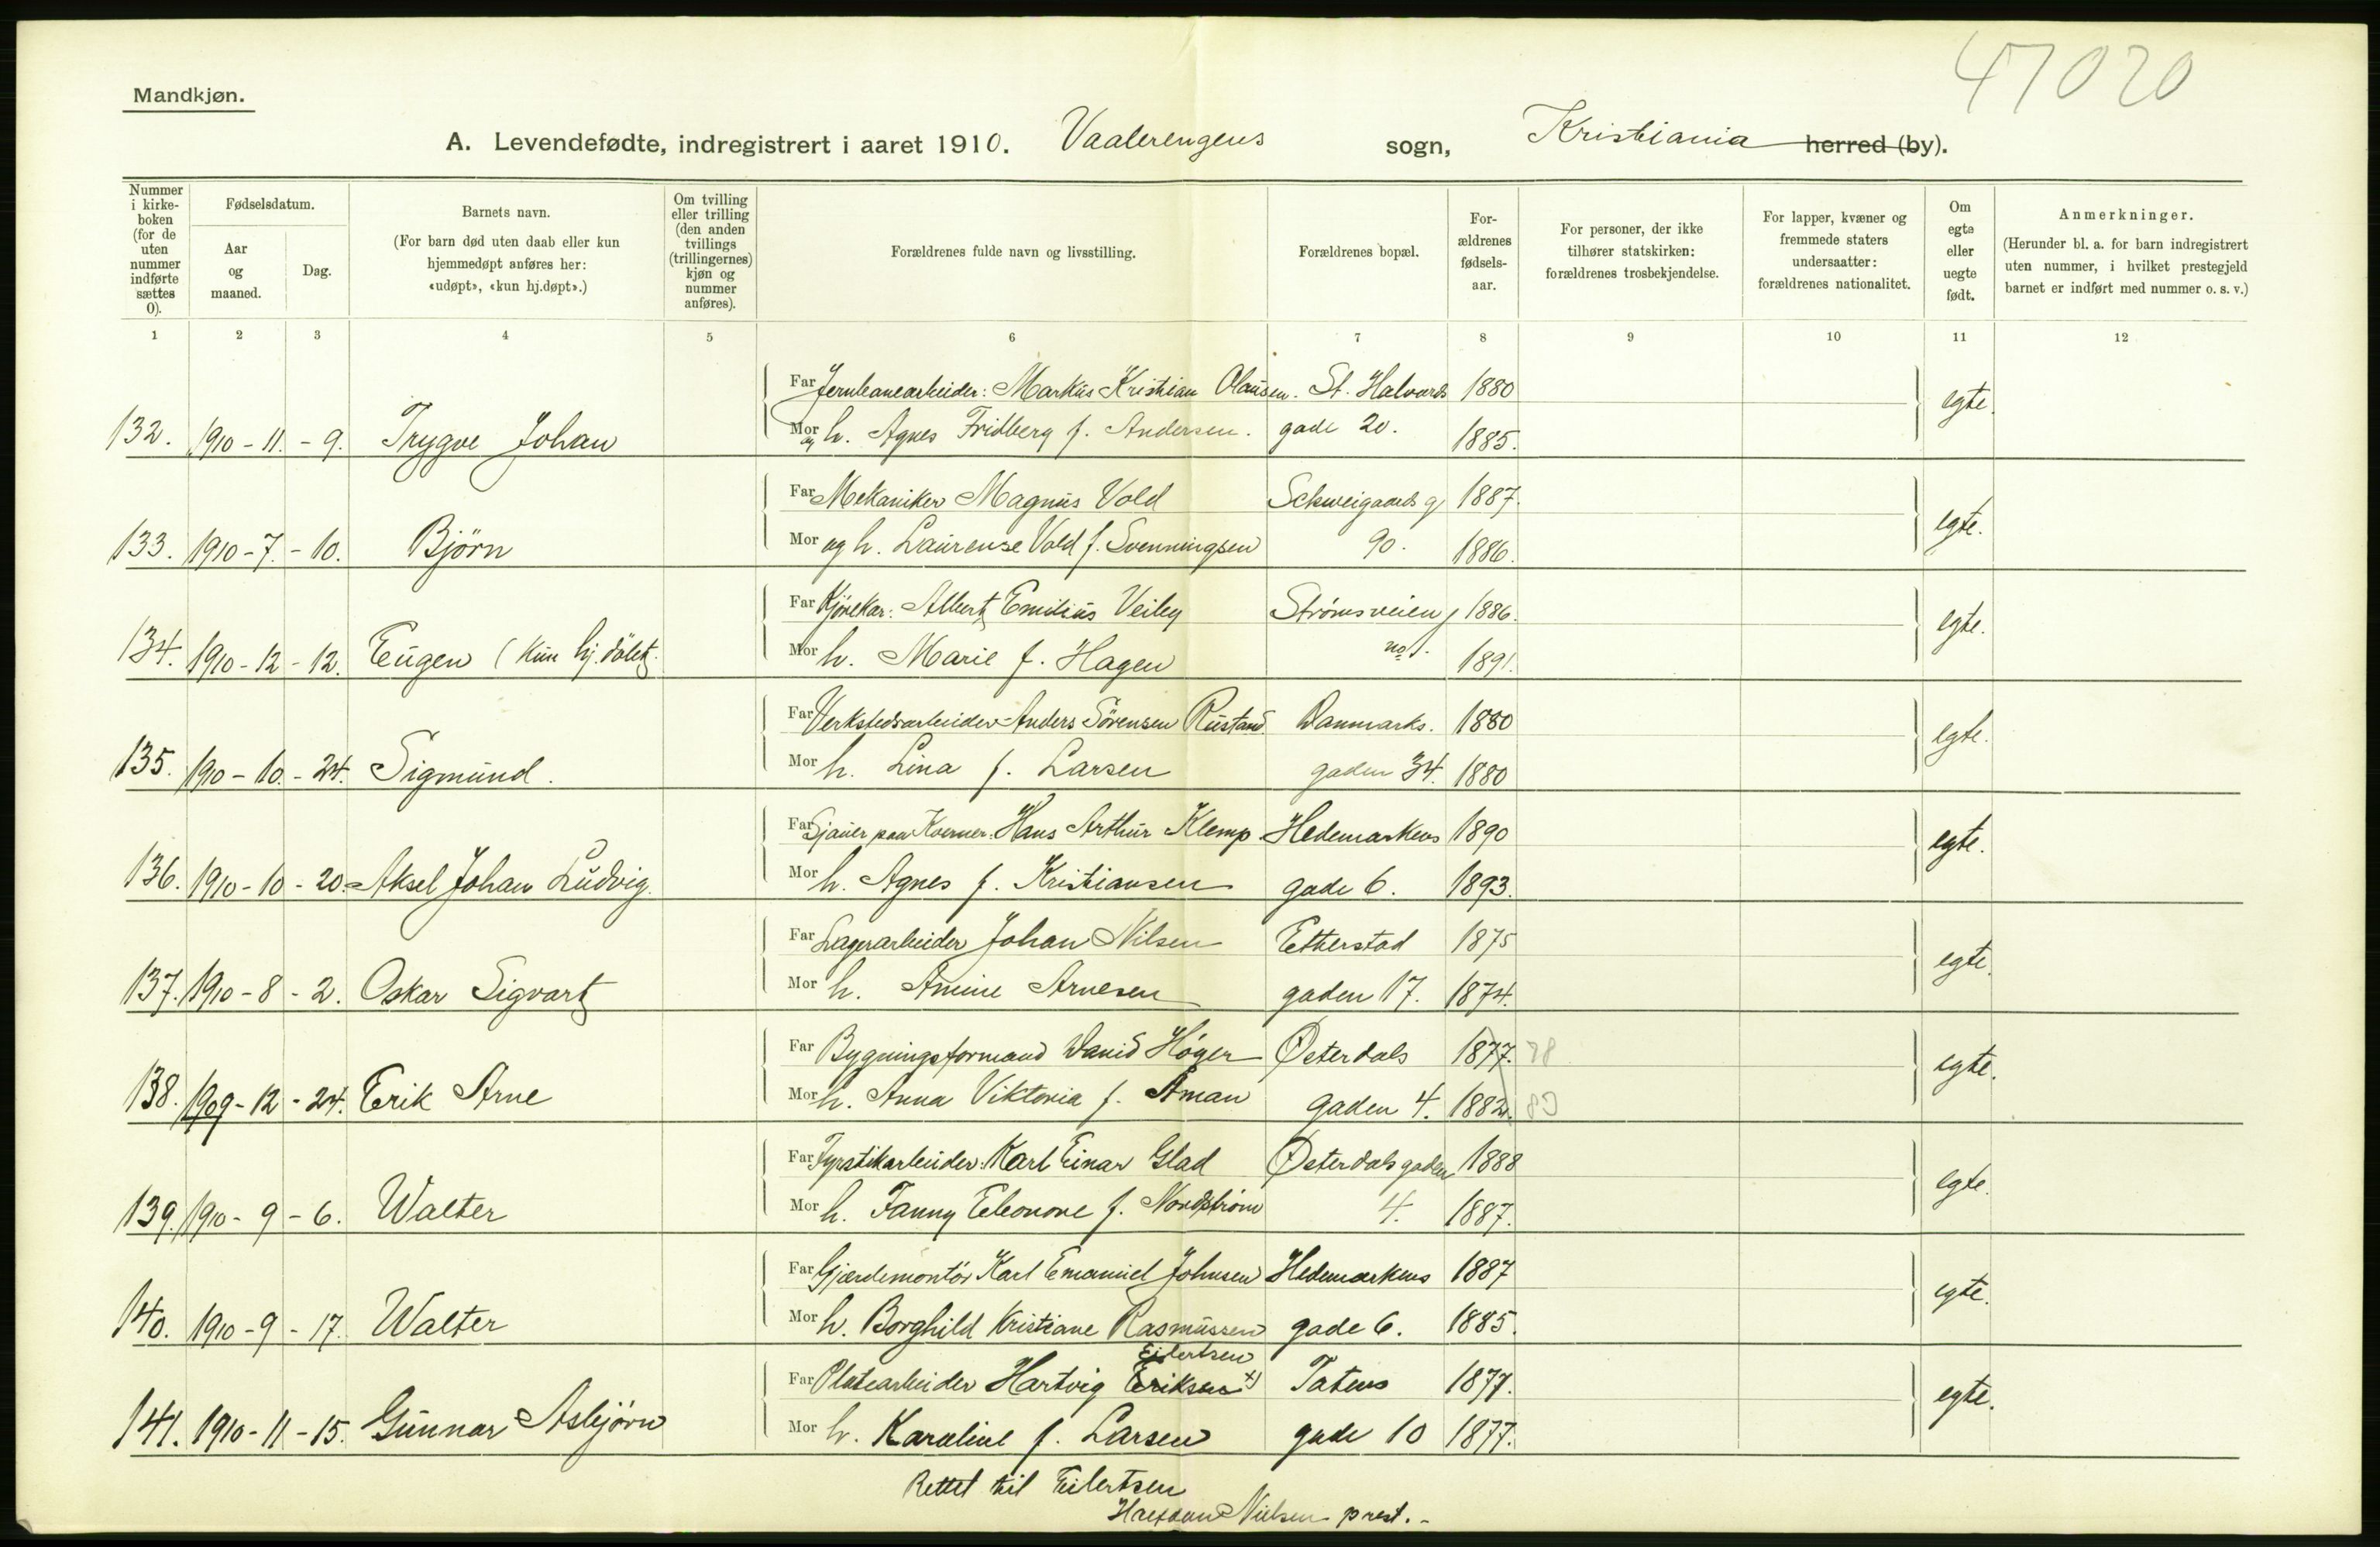 47020
Mandkjøn.
A. Levendefødte, indregistrert i aaret 1910. Vaalerengens sogn, Kristiania herred (by).
Nummer i kirke-boken (for de uten nummer indførte sættes 0).
Fødselsdatum.
Aar og maaned.
Dag.
Barnets navn.
(For barn død uten daab eller kun hjemmedøpt anføres her: «udøpt», «kun hj.døpt».)
Om tvilling eller trilling (den anden tvillings (trillingernes) kjøn og nummer anføres).
Forældrenes fulde navn og livsstilling.
Forældrenes bopæl.
For-ældrenes fødsels-aar.
For personer, der ikke tilhører statskirken: forældrenes trosbekjendelse.
For lapper, kvæner og fremmede staters undersaatter: forældrenes nationalitet.
Om egte eller uegte født.
Anmerkninger.
(Herunder bl. a. for barn indregistrert uten nummer, i hvilket prestegjeld barnet er indført med nummer o. s. v.)
1 2 3 4 5 6 7 8 9 10 11 12
Far Jernbanearbeider: Markus Kristian Olausen. St. Halvards 1880
132. 1910-11.-9. Trygve Johan Mor og h. Agnes Fridberg f. Andersen. gade 20. 1885. egte.
Far Mekaniker Magnus Vold Schweigaards g 1887.
133. 1910-7-10. Björn Mor og h. Laurense Vold f. Svenningsen 90. 1886. egte.
Far Kjörekar: Albert Emilius Veiby Strømsveien 1886.
134. 1910-12-12. Eugen (Kun hj. döbt. Mor h. Marie f. Hagen no 1. 1891. egte.
Far Verkstedsarbeider Anders Sörensen Rustand Danmarks. 1880
135. 1910-10.-24. Sigmund. Mor h. Lina f. Larsen gaden 34. 1880 egte.
Far Sjauer paa Kværner: Hans Arthur Klemp Hedemarkens 1890
136. 1910-10-20. Aksel Johan Ludvig. Mor h. Agnes f. Kristiansen gade 6. 1893. egte.
Far Lagerarbeider Johan Nilsen Etterstad 1875
137. 1910-8-2. Oskar Sigvart Mor h. Amine Arnesen gaden 17. 1874. egte.
Far Bygningsformand David Höger Østerdals 1877. 78
138. 1909-12-24. Erik Arne Mor h. Anna Viktoria f. Åman gaden 4. 1882. 80 egte.
Far Fyrstikarbeider: Karl Einar Glad Østerdalsgaden 1888
139. 1910-9-6. Walter Mor h. Fanny Eleonore f. Nordstrøm 4. 1887. egte.
Far Gjærdemontör Karl Emanuel Johnsen Hedemarkens 1887
140. 1910-9-17. Walter Mor h. Borghild Kristiane Rasmussen gade 6. 1885. egte.
Eilertsen
Far Platearbeider Hartvig Eriksen x) Tøiens 1877.
141. 1910-11-15. Gunnar Asbjørn Mor h. Karoline f. Larsen gade 10 1877. egte.
Rettet til Eilertsen
Halfdan Nielsen prest.-